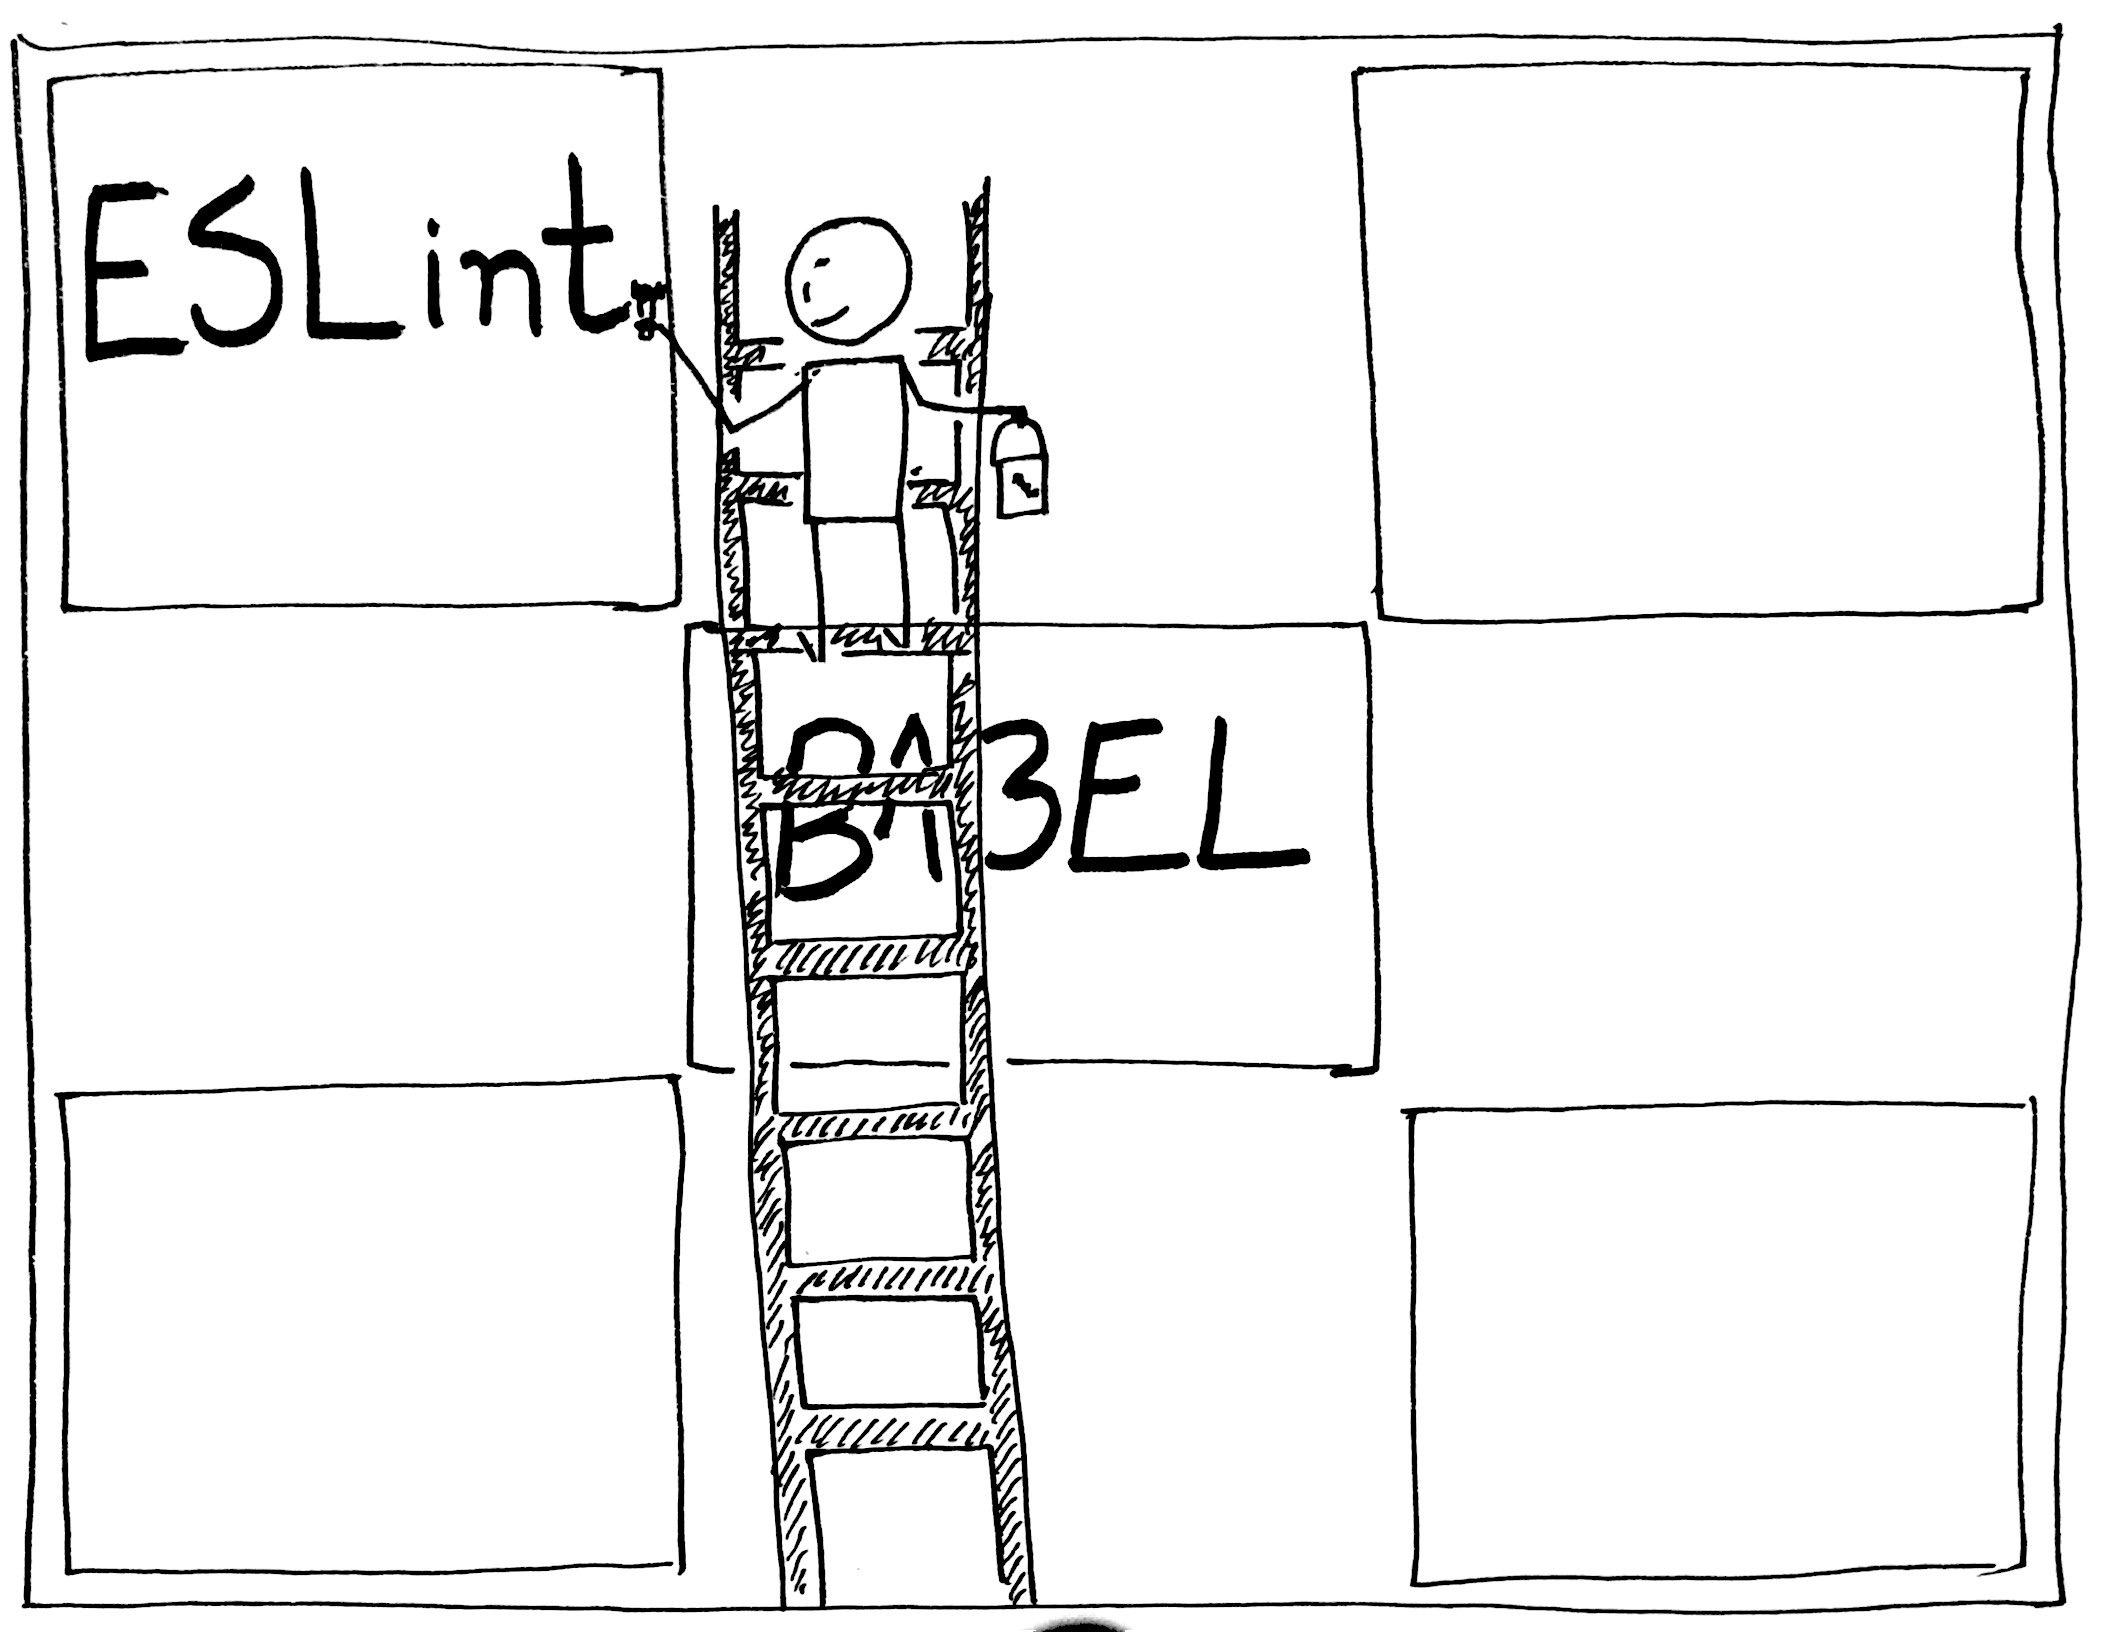 ESLint
BABEL